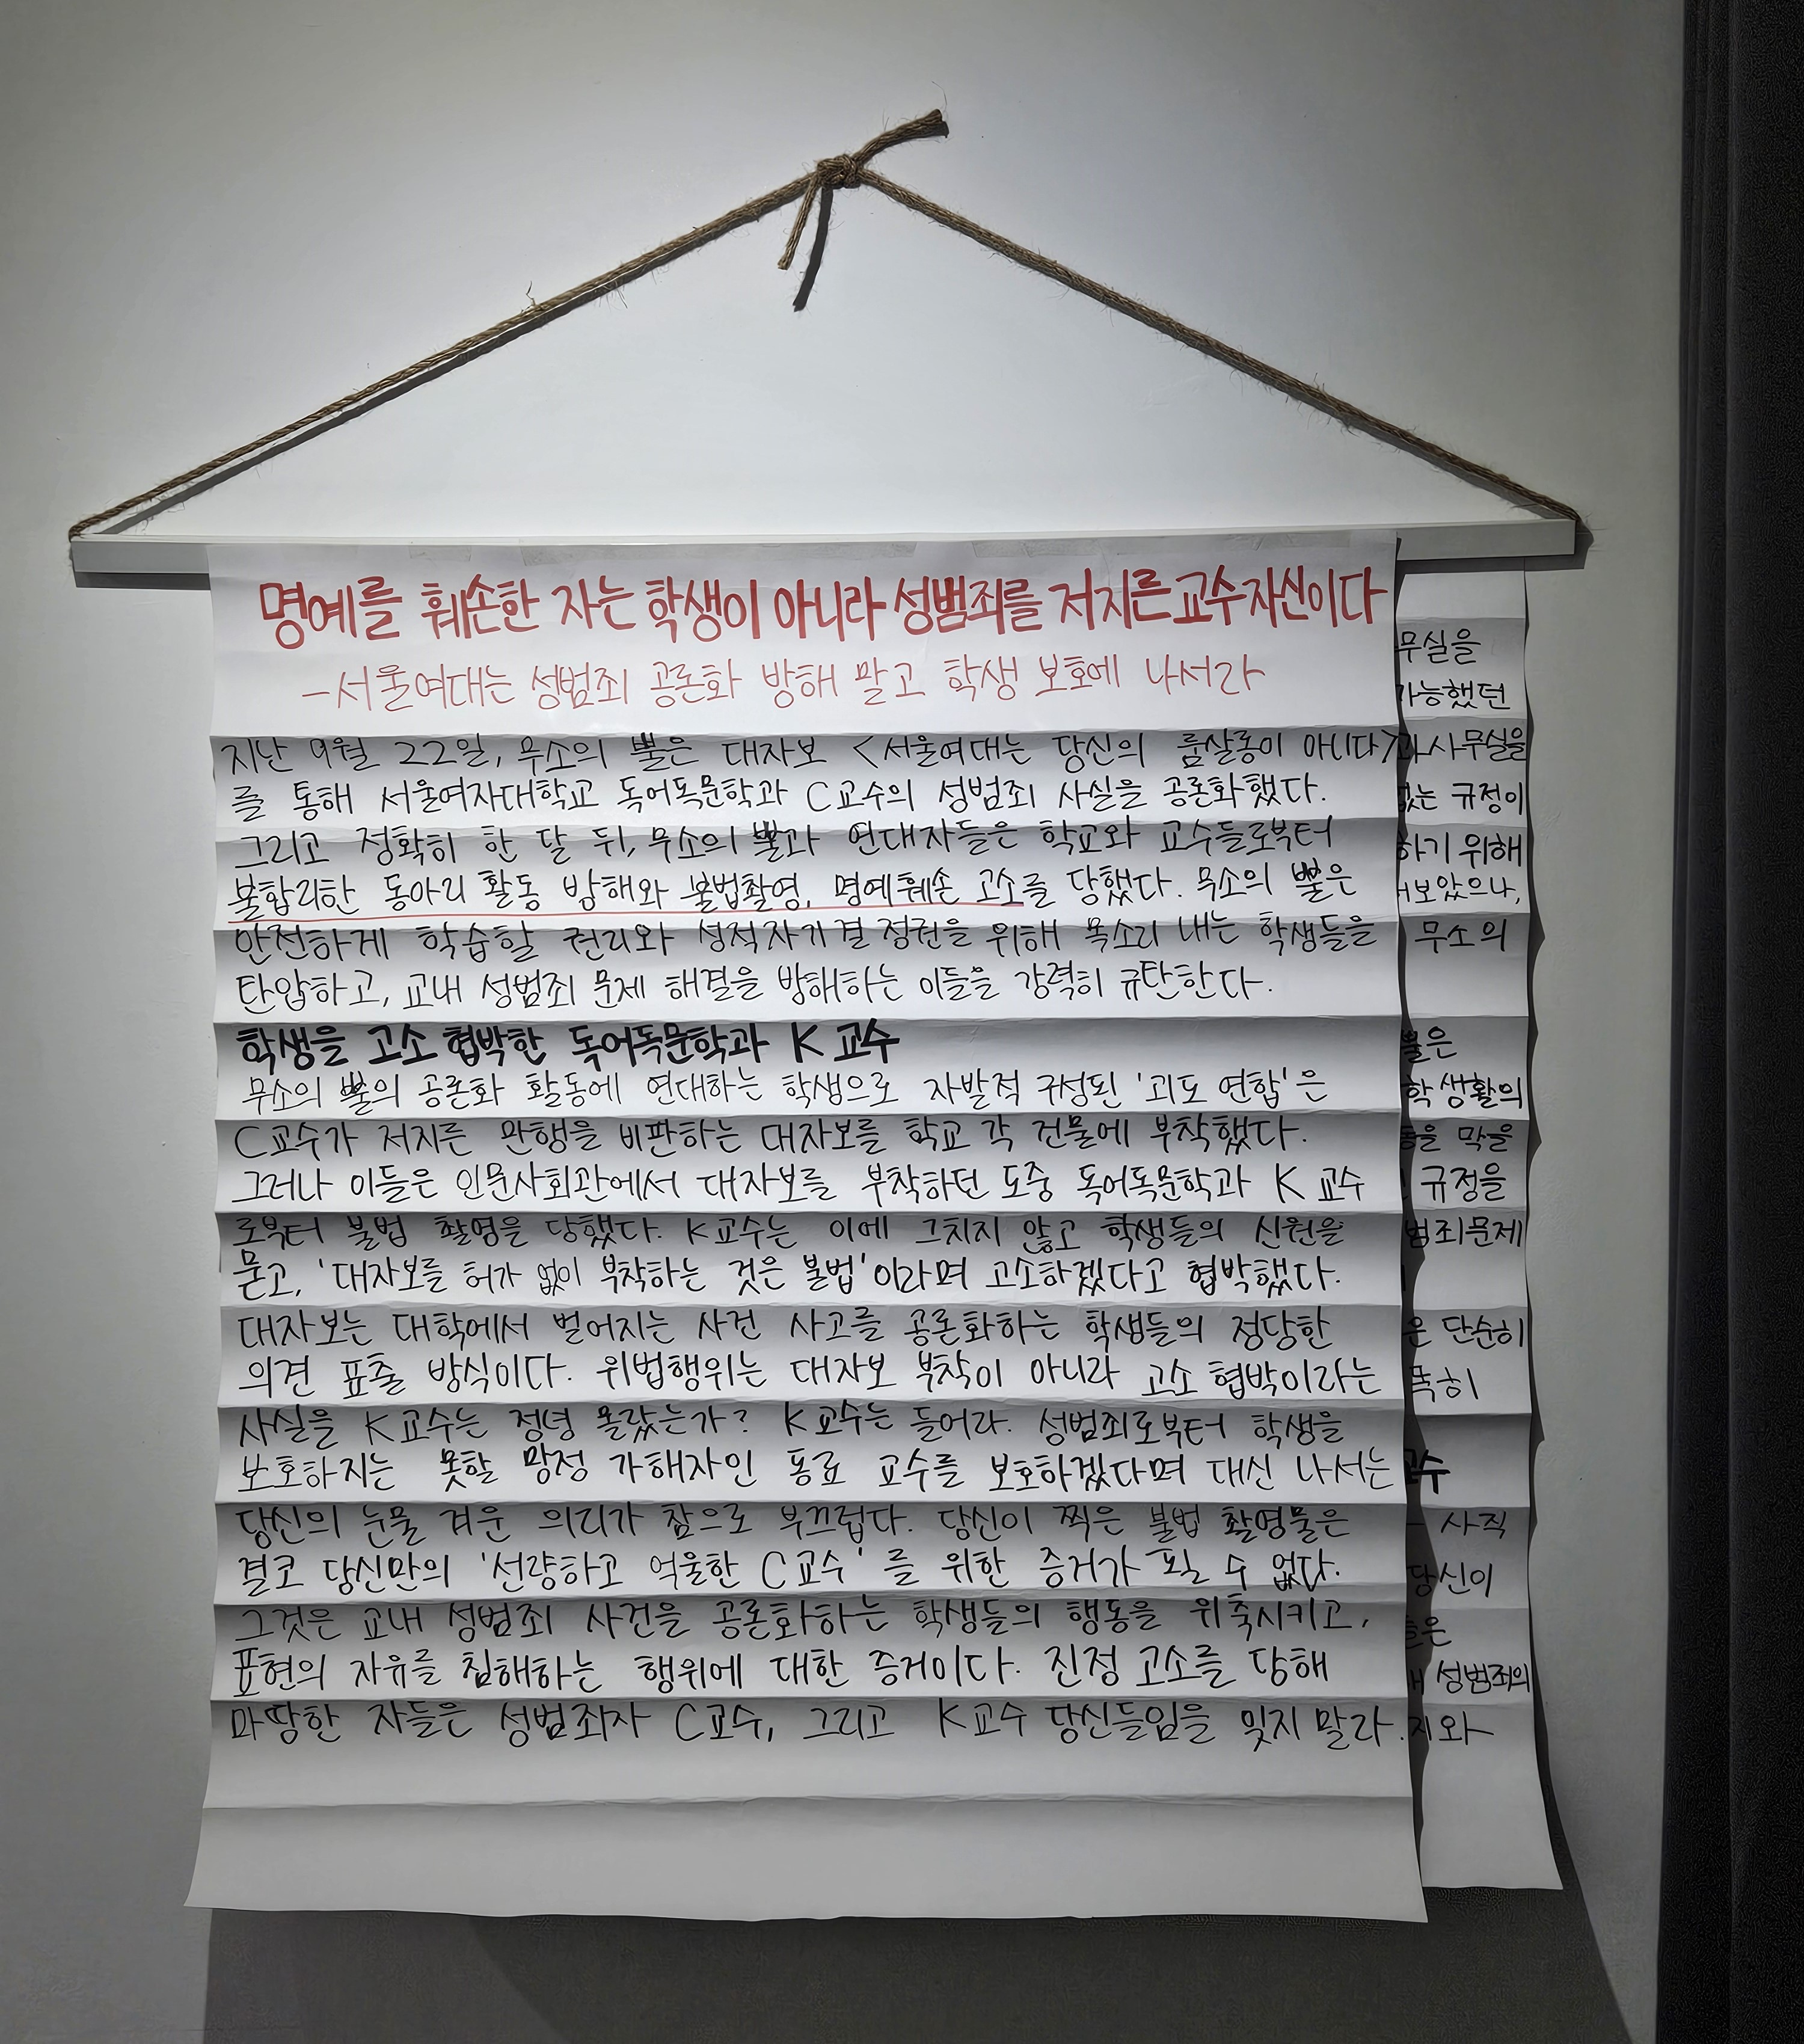 명예를 훼손한 자는 학생이 아니라 성범죄를 저지른 교수 자신이다
-서울여대는 성범죄 공론화 방해 말고 학생 보호에 나서라
지난 9월 22일, 무소의 뿔은 대자보 <서울여대는 당신의 룸살롱이 아니다>
를 통해 서울여자대학교 독어독문학과 C교수의 성범죄 사실을 공론화했다.
그리고 정확히 한 달 뒤, 무소의 뿔과 연대자들은 학교와 교수들로부터
불합리한 동아리 활동 방해와 불법촬영, 명예훼손 고소를 당했다. 무소의 뿔은
안전하게 학습할 권리와 성적자기결정권을 위해 목소리 내는 학생들을
탄압하고, 교내 성범죄 문제 해결을 방해하는 이들을 강력히 규탄한다.
학생을 고소 협박한 독어독문학과 K 교수
무소의 뿔의 공론화 활동에 연대하는 학생으로 자발적 구성된 '괴도 연합'은
C교수가 저지른 만행을 비판하는 대자보를 학교 각 건물에 부착했다.
그러나 이들은 인문사회관에서 대자보를 부착하던 도중 독어독문학과 K 교수
로부터 불법 촬영을 당했다. K교수는 이에 그치지 않고 학생들의 신원을
묻고, '대자보를 허가 없이 부착하는 것은 불법'이라며 고소하겠다고 협박했다.
대자보는 대학에서 벌어지는 사건 사고를 공론화하는 학생들의 정당한
의견 표출 방식이다. 위법행위는 대자보 부착이 아니라 고소 협박이라는
사실을 K교수는 정녕 몰랐는가? K교수는 들어라. 성범죄로부터 학생을
보호하지는 못할 망정 가해자인 동료 교수를 보호하겠다며 대신 나서는
당신의 눈물 겨운 의리가 참으로 부끄럽다. 당신이 찍은 불법 촬영물은
결코 당신만의 '선량하고 억울한 C교수'를 위한 증거가 될 수 없다.
그것은 교내 성범죄 사건을 공론화하는 학생들의 행동을 위축시키고,
표현의 자유를 침해하는 행위에 대한 증거이다. 진정 고소를 당해
마땅한 자들은 성범죄자 C교수, 그리고 K교수 당신들임을 잊지 말라.
무실을
가능했던
과사무실을
없는 규정이
하기 위해
보았으나,
무소의
뿔은
학생활의
을 막을
규정을
범죄문제
은 단순히
특히
교수
- 사직
당신이
은
성범죄의
지와